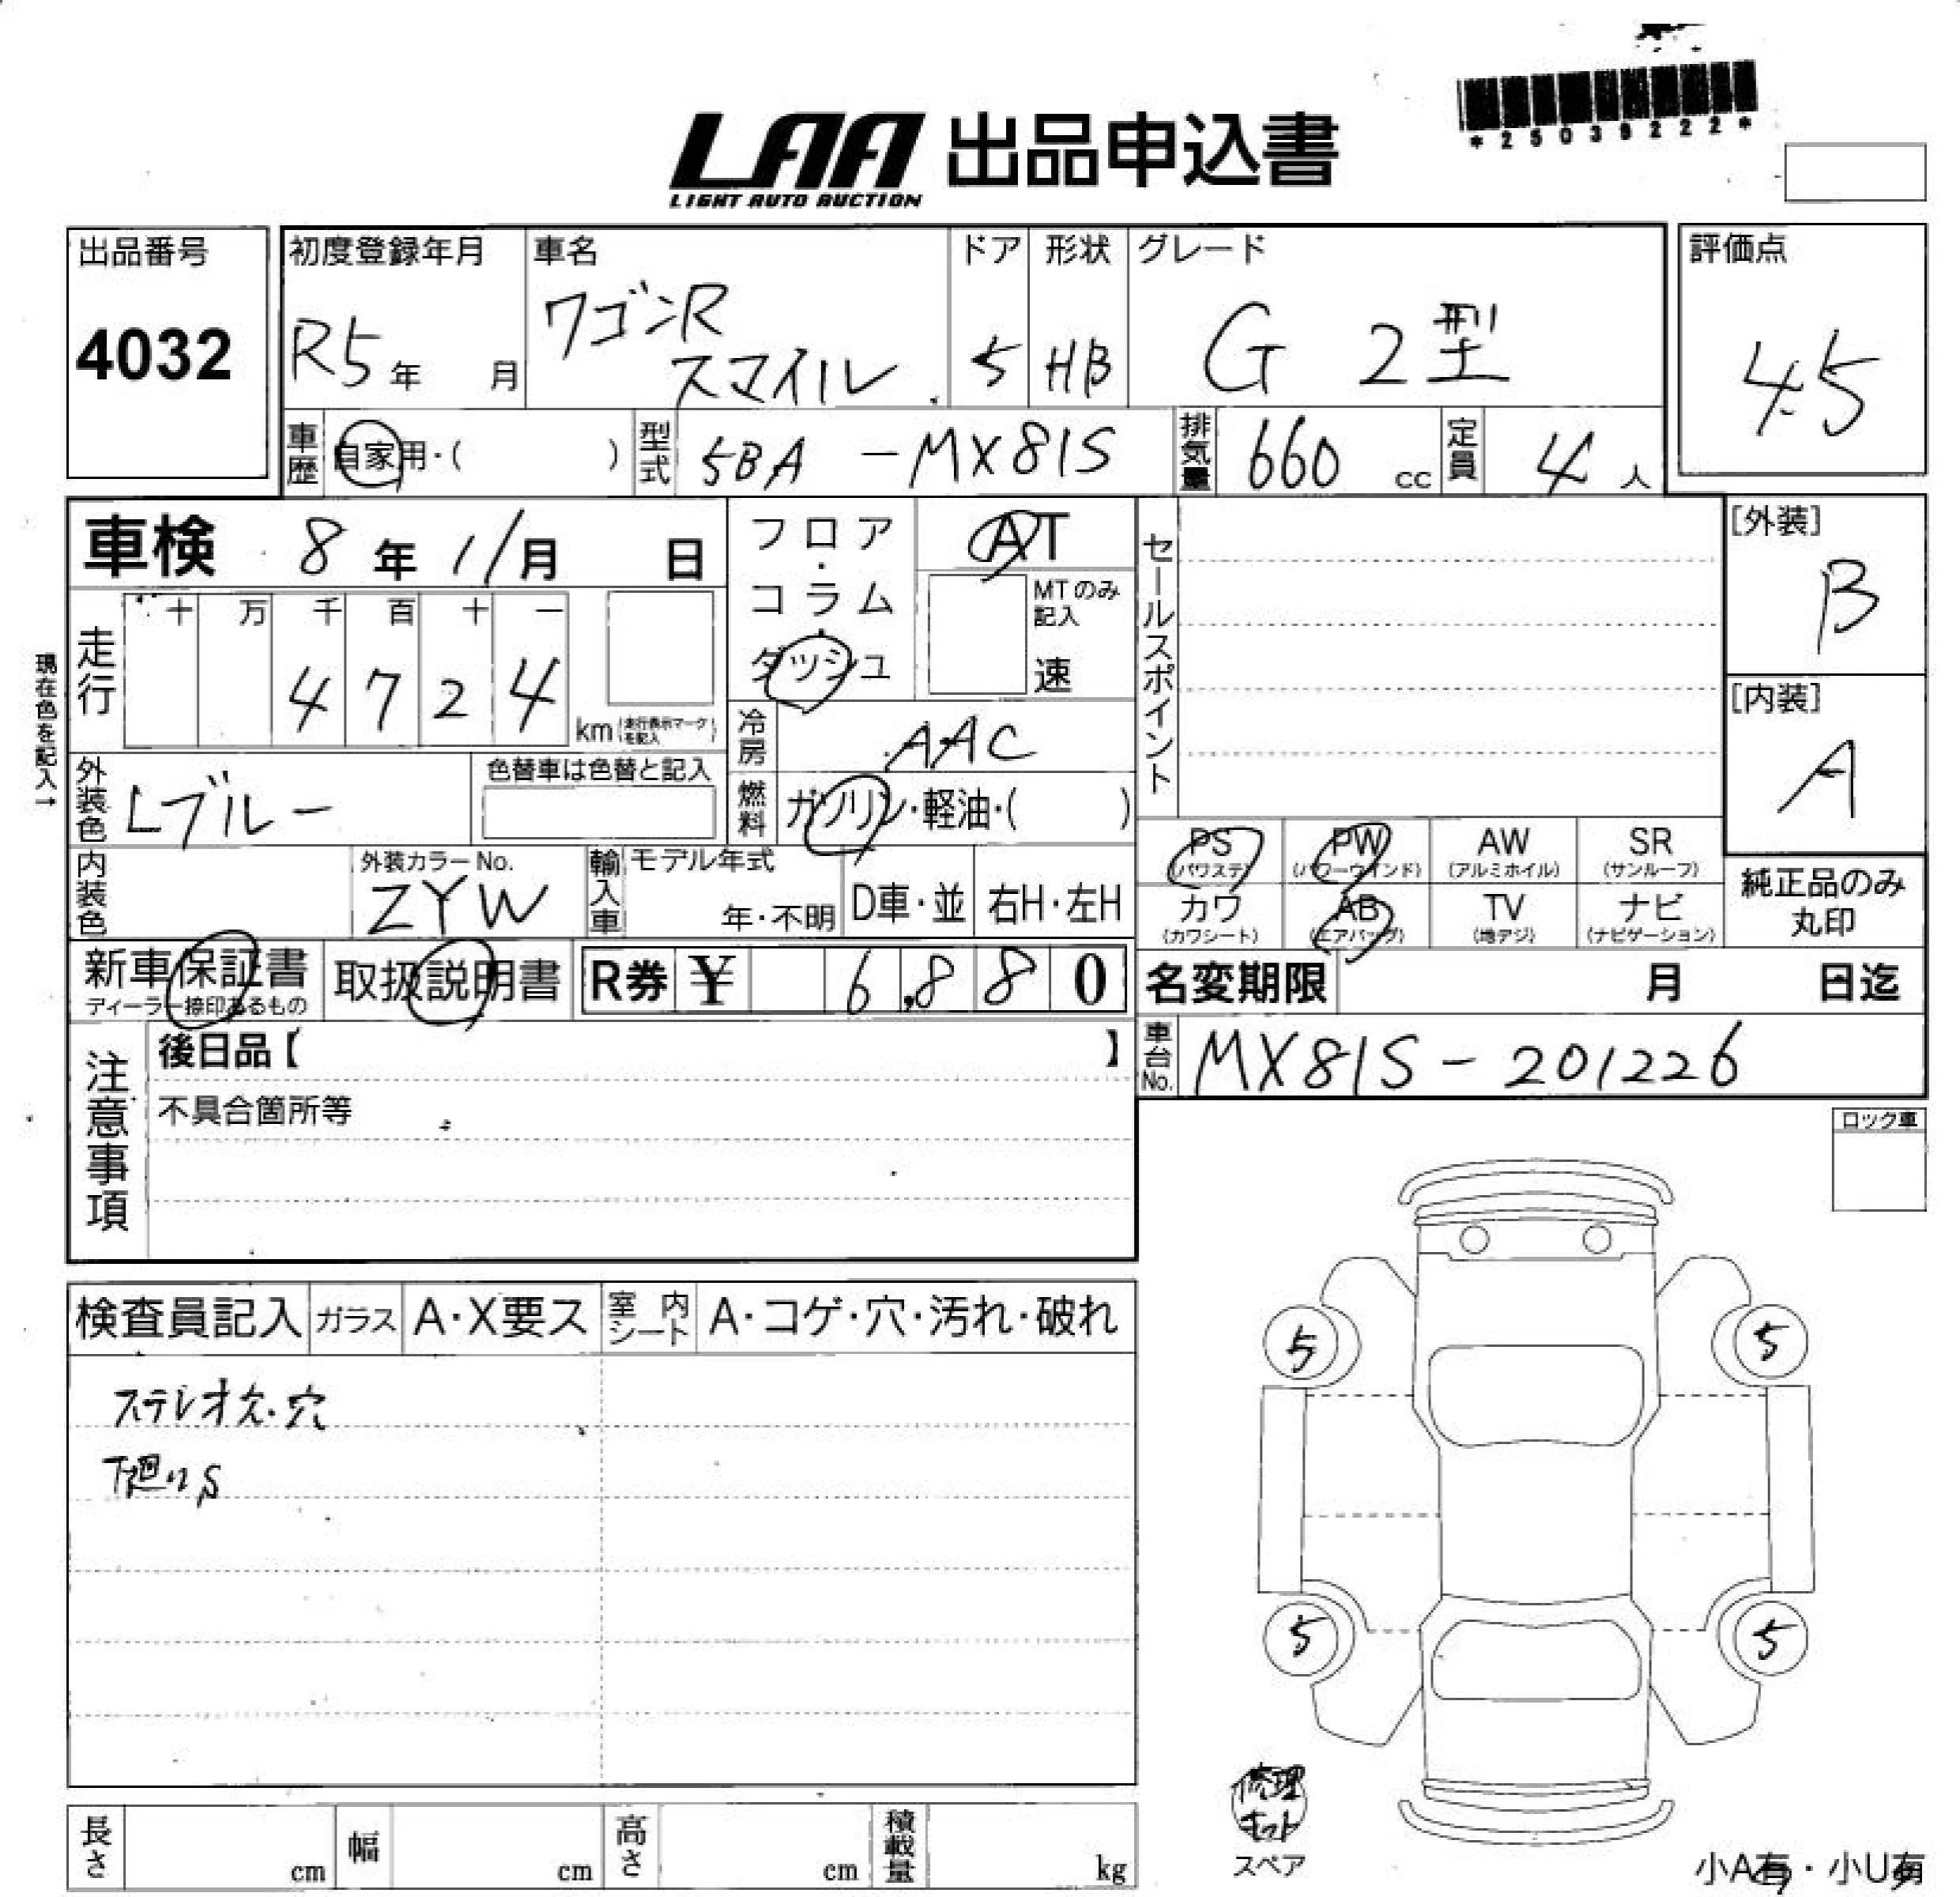 *25039222*
LAA 出品申込書
LIGHT AUTO AUCTION
出品番号
4032
初度登録年月
R5年 月
車名
ワゴンR
スマイル
ドア
5
形状
HB
グレード
G 2型
評価点
4.5
車歴 自家用・( )
型式 5BA -MX81S
排気量 660 cc
定員 4 人
車検 8年11月 日
フロア・
コラム・
ダッシュ
AT
MTのみ
記入
速
セールスポイント
[外装]
B
[内装]
A
現在色を記入→
走行
十 万 千 百 十 一
4 7 2 4
km (走行表示マークを記入)
冷房 AAC
燃料 ガソリン・軽油・( )
外装色 Lブルー
色替車は色替と記入
内装色
外装カラーNo.
ZYW
輸入車
モデル年式
年・不明
D車・並
右H・左H
PS
(パワステ)
PW
(パワーウインド)
AW
(アルミホイル)
SR
(サンルーフ)
カワ
(カワシート)
AB
(エアバッグ)
TV
(地デジ)
ナビ
(ナビゲーション)
純正品のみ
丸印
新車保証書
ディーラー捺印あるもの
取扱説明書
R券 ¥ 6,880
名変期限 月 日迄
車台No. MX81S-201226
注意事項
後日品【 】
不具合箇所等
ロック車
検査員記入
ガラス A・X要ス
室内シート A・コゲ・穴・汚れ・破れ
ステレオ欠.穴
下廻りS
5 5
5 5
修理
キット
スペア
長さ cm
幅 cm
高さ cm
積載量 kg
小A有・小U有